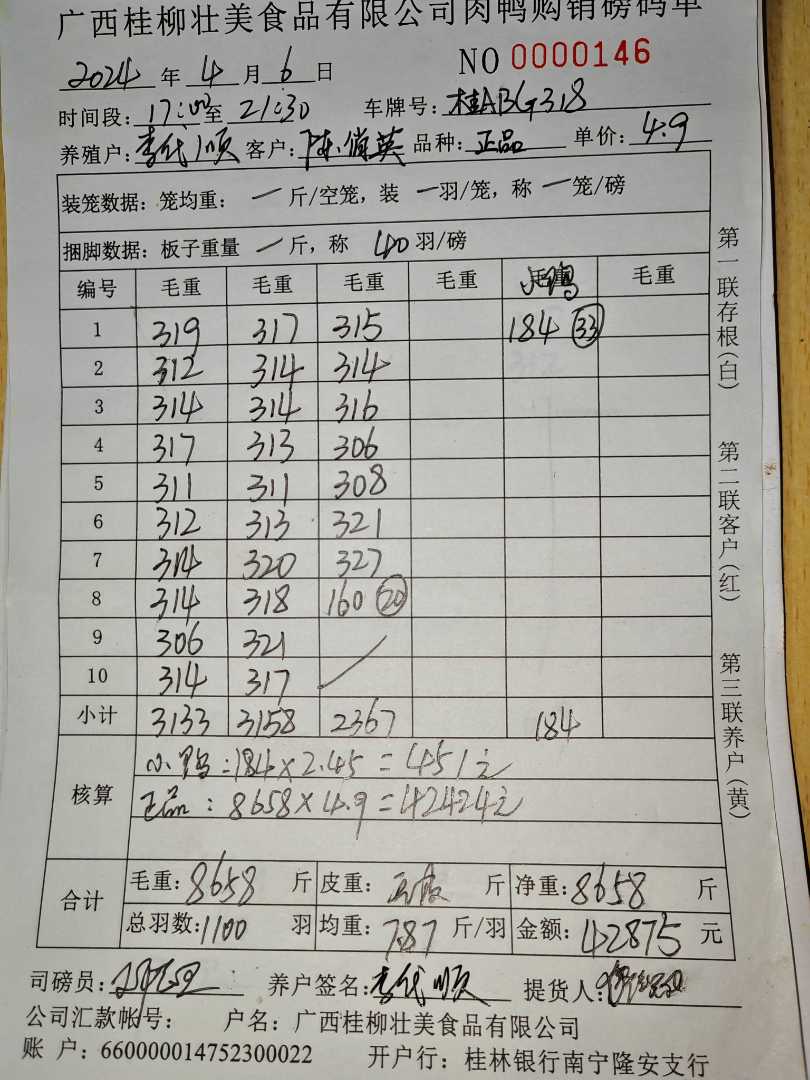 广西桂柳壮美食品有限公司肉鸭购销磅码单
2024 年 4 月 6 日 NO 0000146
时间段: 17:00 至 21:30 车牌号: 桂ABG318
养殖户: 李代顺 客户: 陈俏英 品种: 正品 单价: 4.9
装笼数据: 笼均重: 一 斤/空笼, 装 一 羽/笼, 称 一 笼/磅
捆脚数据: 板子重量 一 斤, 称 40 羽/磅
编号 毛重 毛重 毛重 毛重 毛重
1 319 317 315 184 33
2 312 314 314
3 314 314 316
4 317 313 306
5 311 311 308
6 312 313 321
7 314 320 327
8 314 318 160 20
9 306 321
10 314 317
小计 3133 3158 2367 184
核算 小鸭:184×2.45=451元
正品:8658×4.9=42424元
合计 毛重: 8658 斤 皮重: 斤 净重: 8658 斤
总羽数: 1100 羽 均重: 7.87 斤/羽 金额: 42875 元
司磅员: 养户签名: 李代顺 提货人:
公司汇款帐号: 户名: 广西桂柳壮美食品有限公司
账 户: 660000014752300022 开户行: 桂林银行南宁隆安支行
第一联存根(白) 第二联客户(红) 第三联养户(黄)